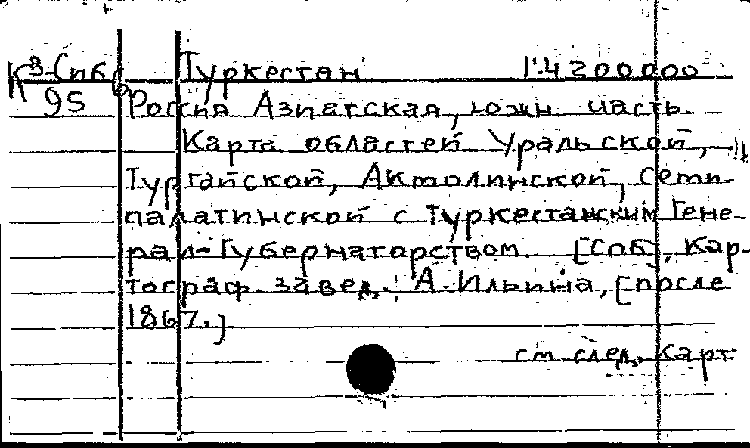 К3-Сиб Туркестан 1:4200000
6/95 Россия Азиатская, южн. часть
Карта областей Уральской,
Тургайской, Акмолинской, Семи-
палатинской с Туркестанским Гене-
рал-Губернаторством [Спб], Кар-
тограф. завед. А. Ильина, [после
1867.]
см. след. карт.